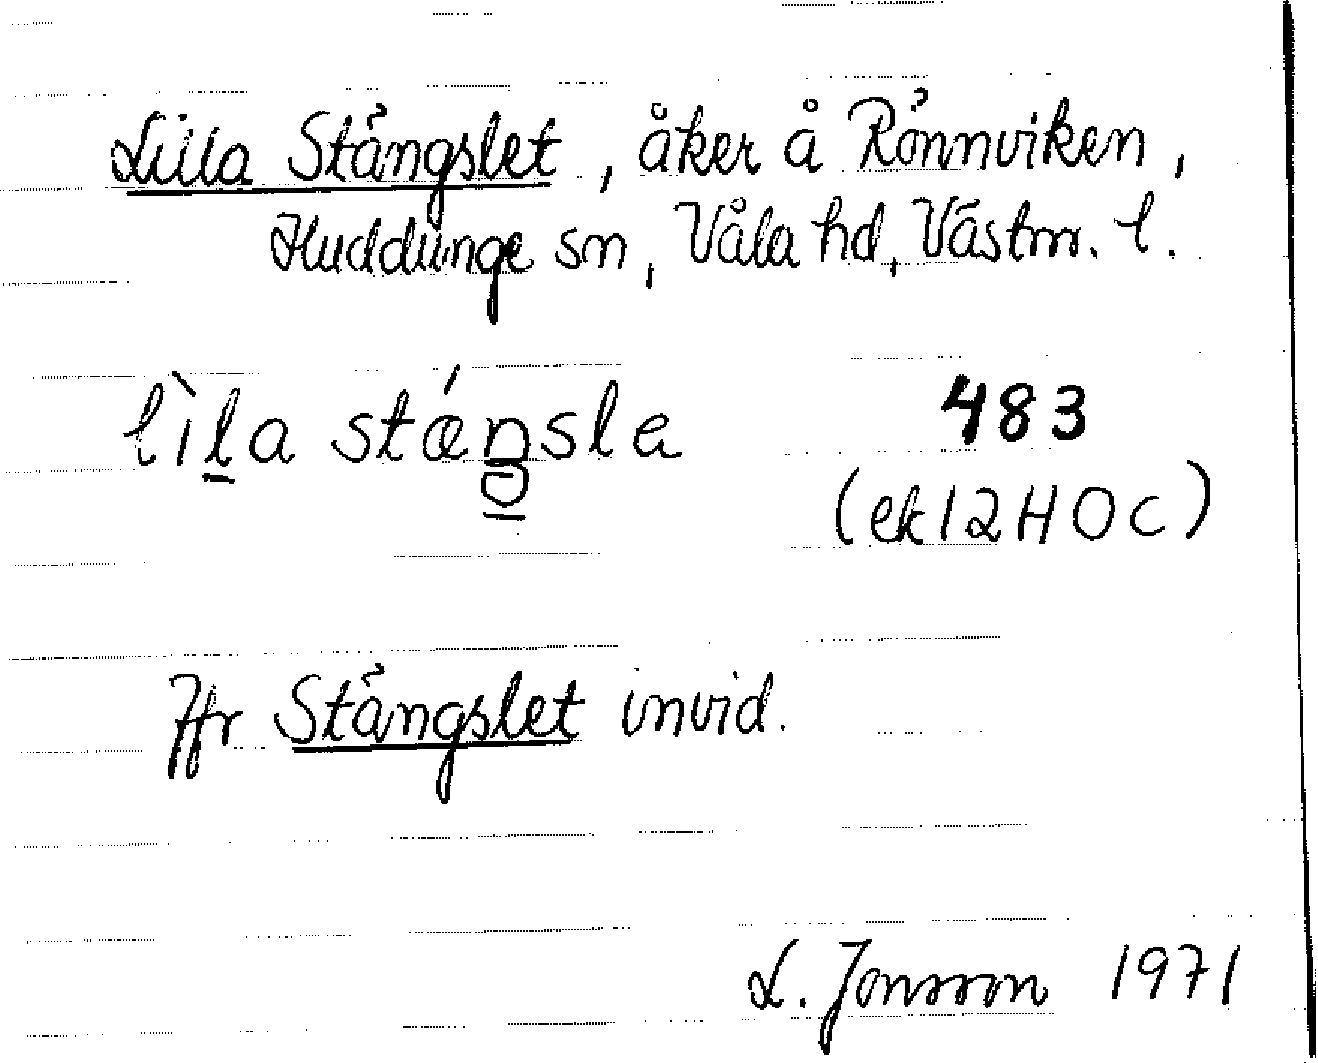 Lilla Stängslet, åker å Rönnviken,
Huddunge sn, Våla hd, Västm. l.
lìla stǽŋsla 483
(ek 12 H 0 c)
Jfr Stängslet invid.
L. Jonsson 1971